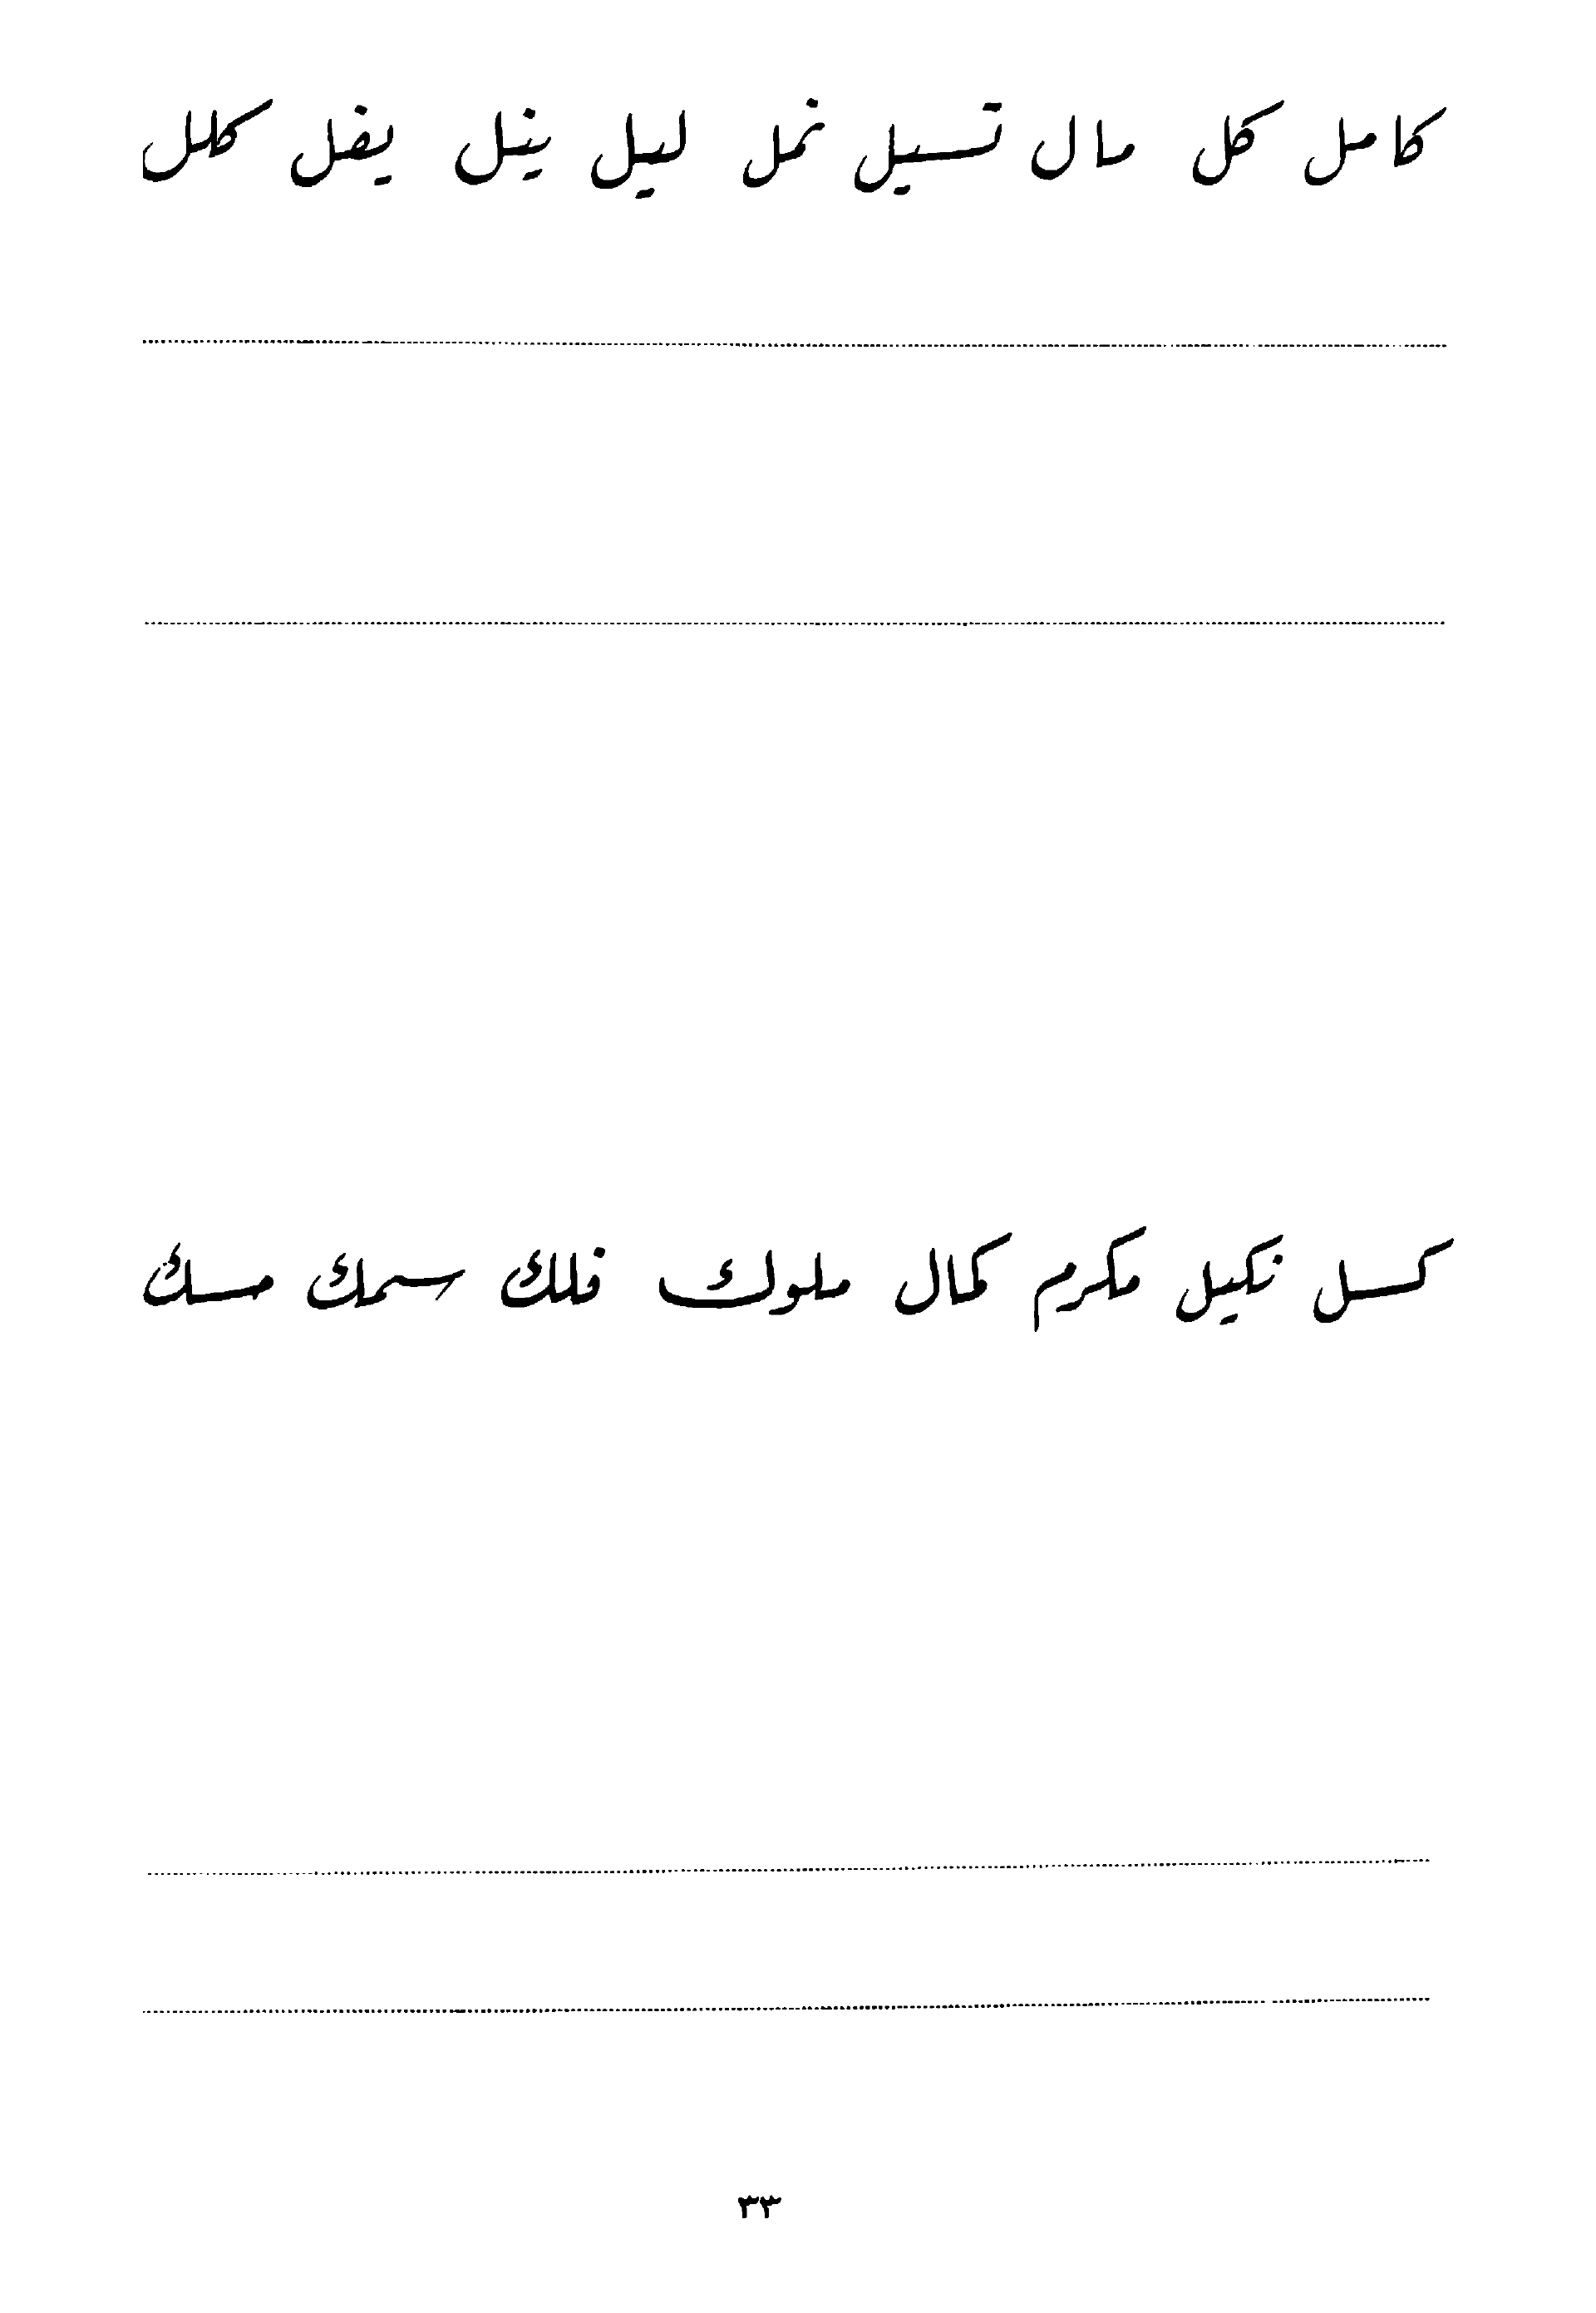 كامل كل مال تسيل نمل ليل ينل يفل كلل
كسل نكيل مكرم كمال ملوك فلك سمك مسك
٣٣